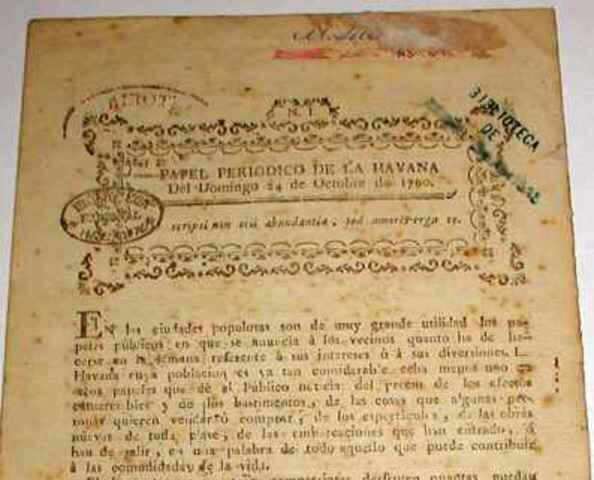 N. 1
BIBLIOTECA
DE
PAPEL PERIODICO DE LA HAVANA
Del Domingo 24 de Octubre de 1790.
scripsi non otii abundantia, sed amoris erga te.
EN las ciudades populosas son de muy grande utilidad los pa-
peles públicos en que se anuncia á los vecinos quanto ha de ha-
cerse en la semana referente á sus intereses ó á sus diversiones. L
Havana cuya poblacion es ya tan considerable echa menos uno de
estos papeles que dé al Público noticia del precio de los efectos
comerciables y de los bastimentos, de las cosas que algunas per-
sonas quieren vender ó comprar, de los espectáculos, de las obras
nuevas de toda clase, de las embarcaciones que han entrado, ó
han de salir, en una palabra de todo aquello que puede contribuir
á las comodidades de la vida.